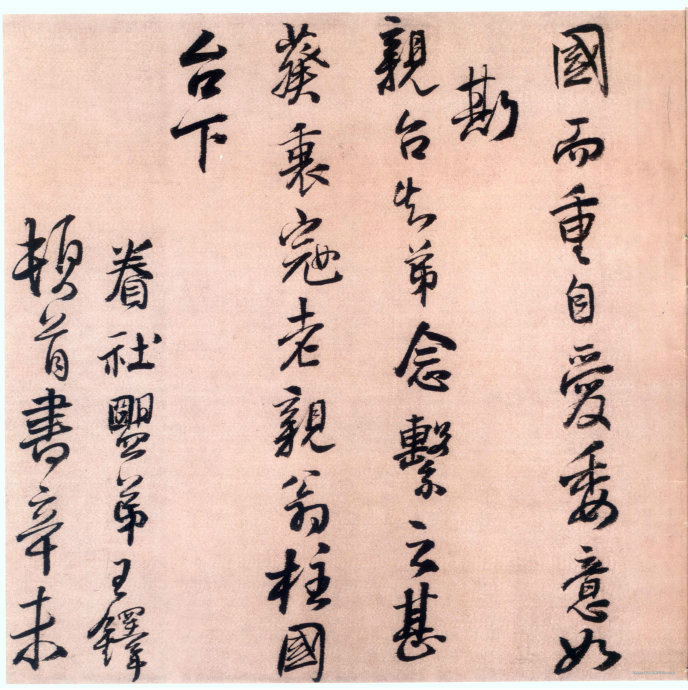 國而重自愛委意如
斯
親台知弟念繫云甚
葵衷寇老親翁柱國
台下
眷社盟弟王鐸
頓首書辛未